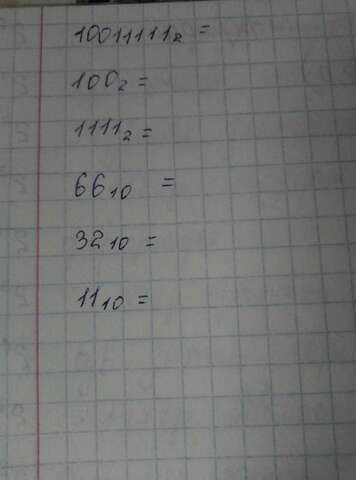 10011111₂ =
100₂ =
1111₂ =
66₁₀ =
32₁₀ =
11₁₀ =